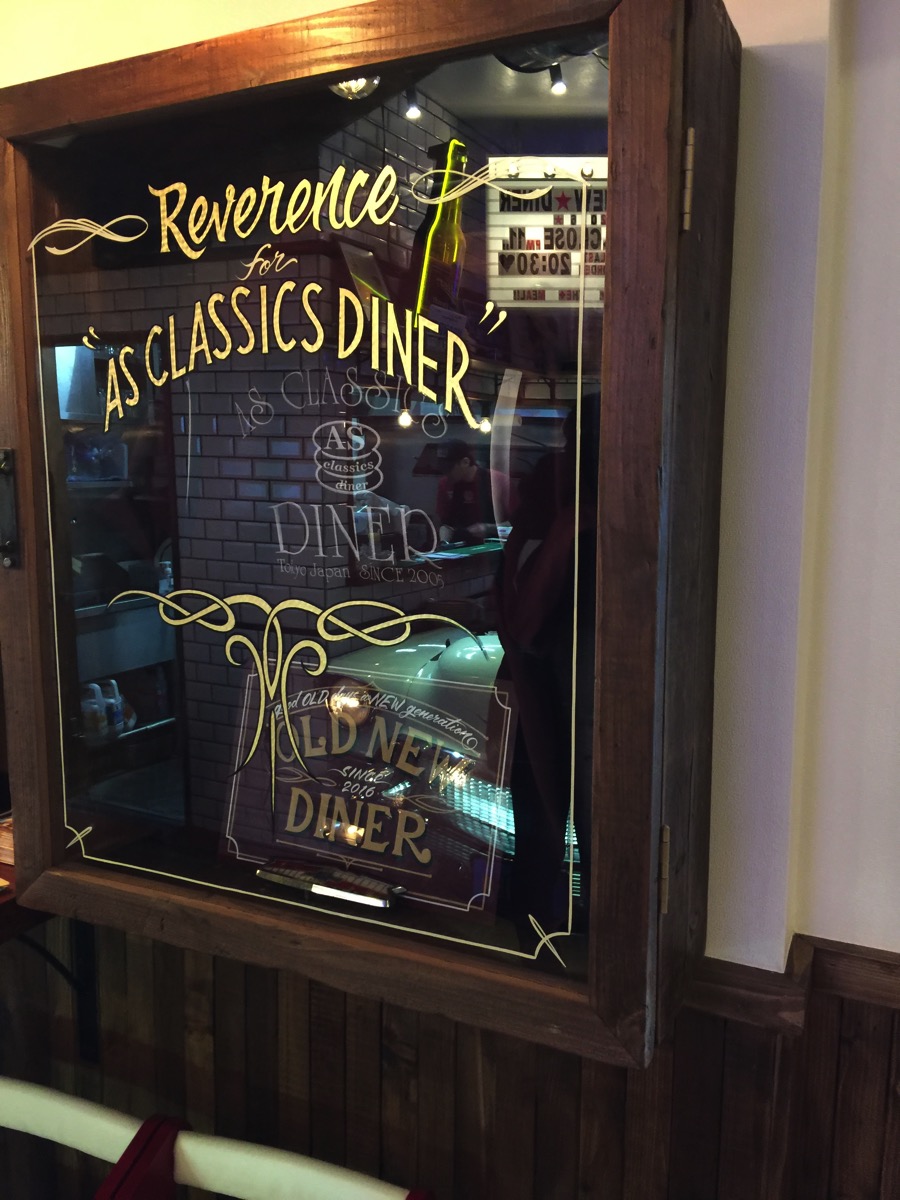 Reverence
for
"AS CLASSICS DINER"
AS CLASSICS
AS
classics
diner
DINER
Tokyo Japan SINCE 2005
good OLD days NEW generation
OLD NEW
SINCE
2016
DINER
NEW★DINER
CLOSE 11 PM
20:30♥
MEAL!!